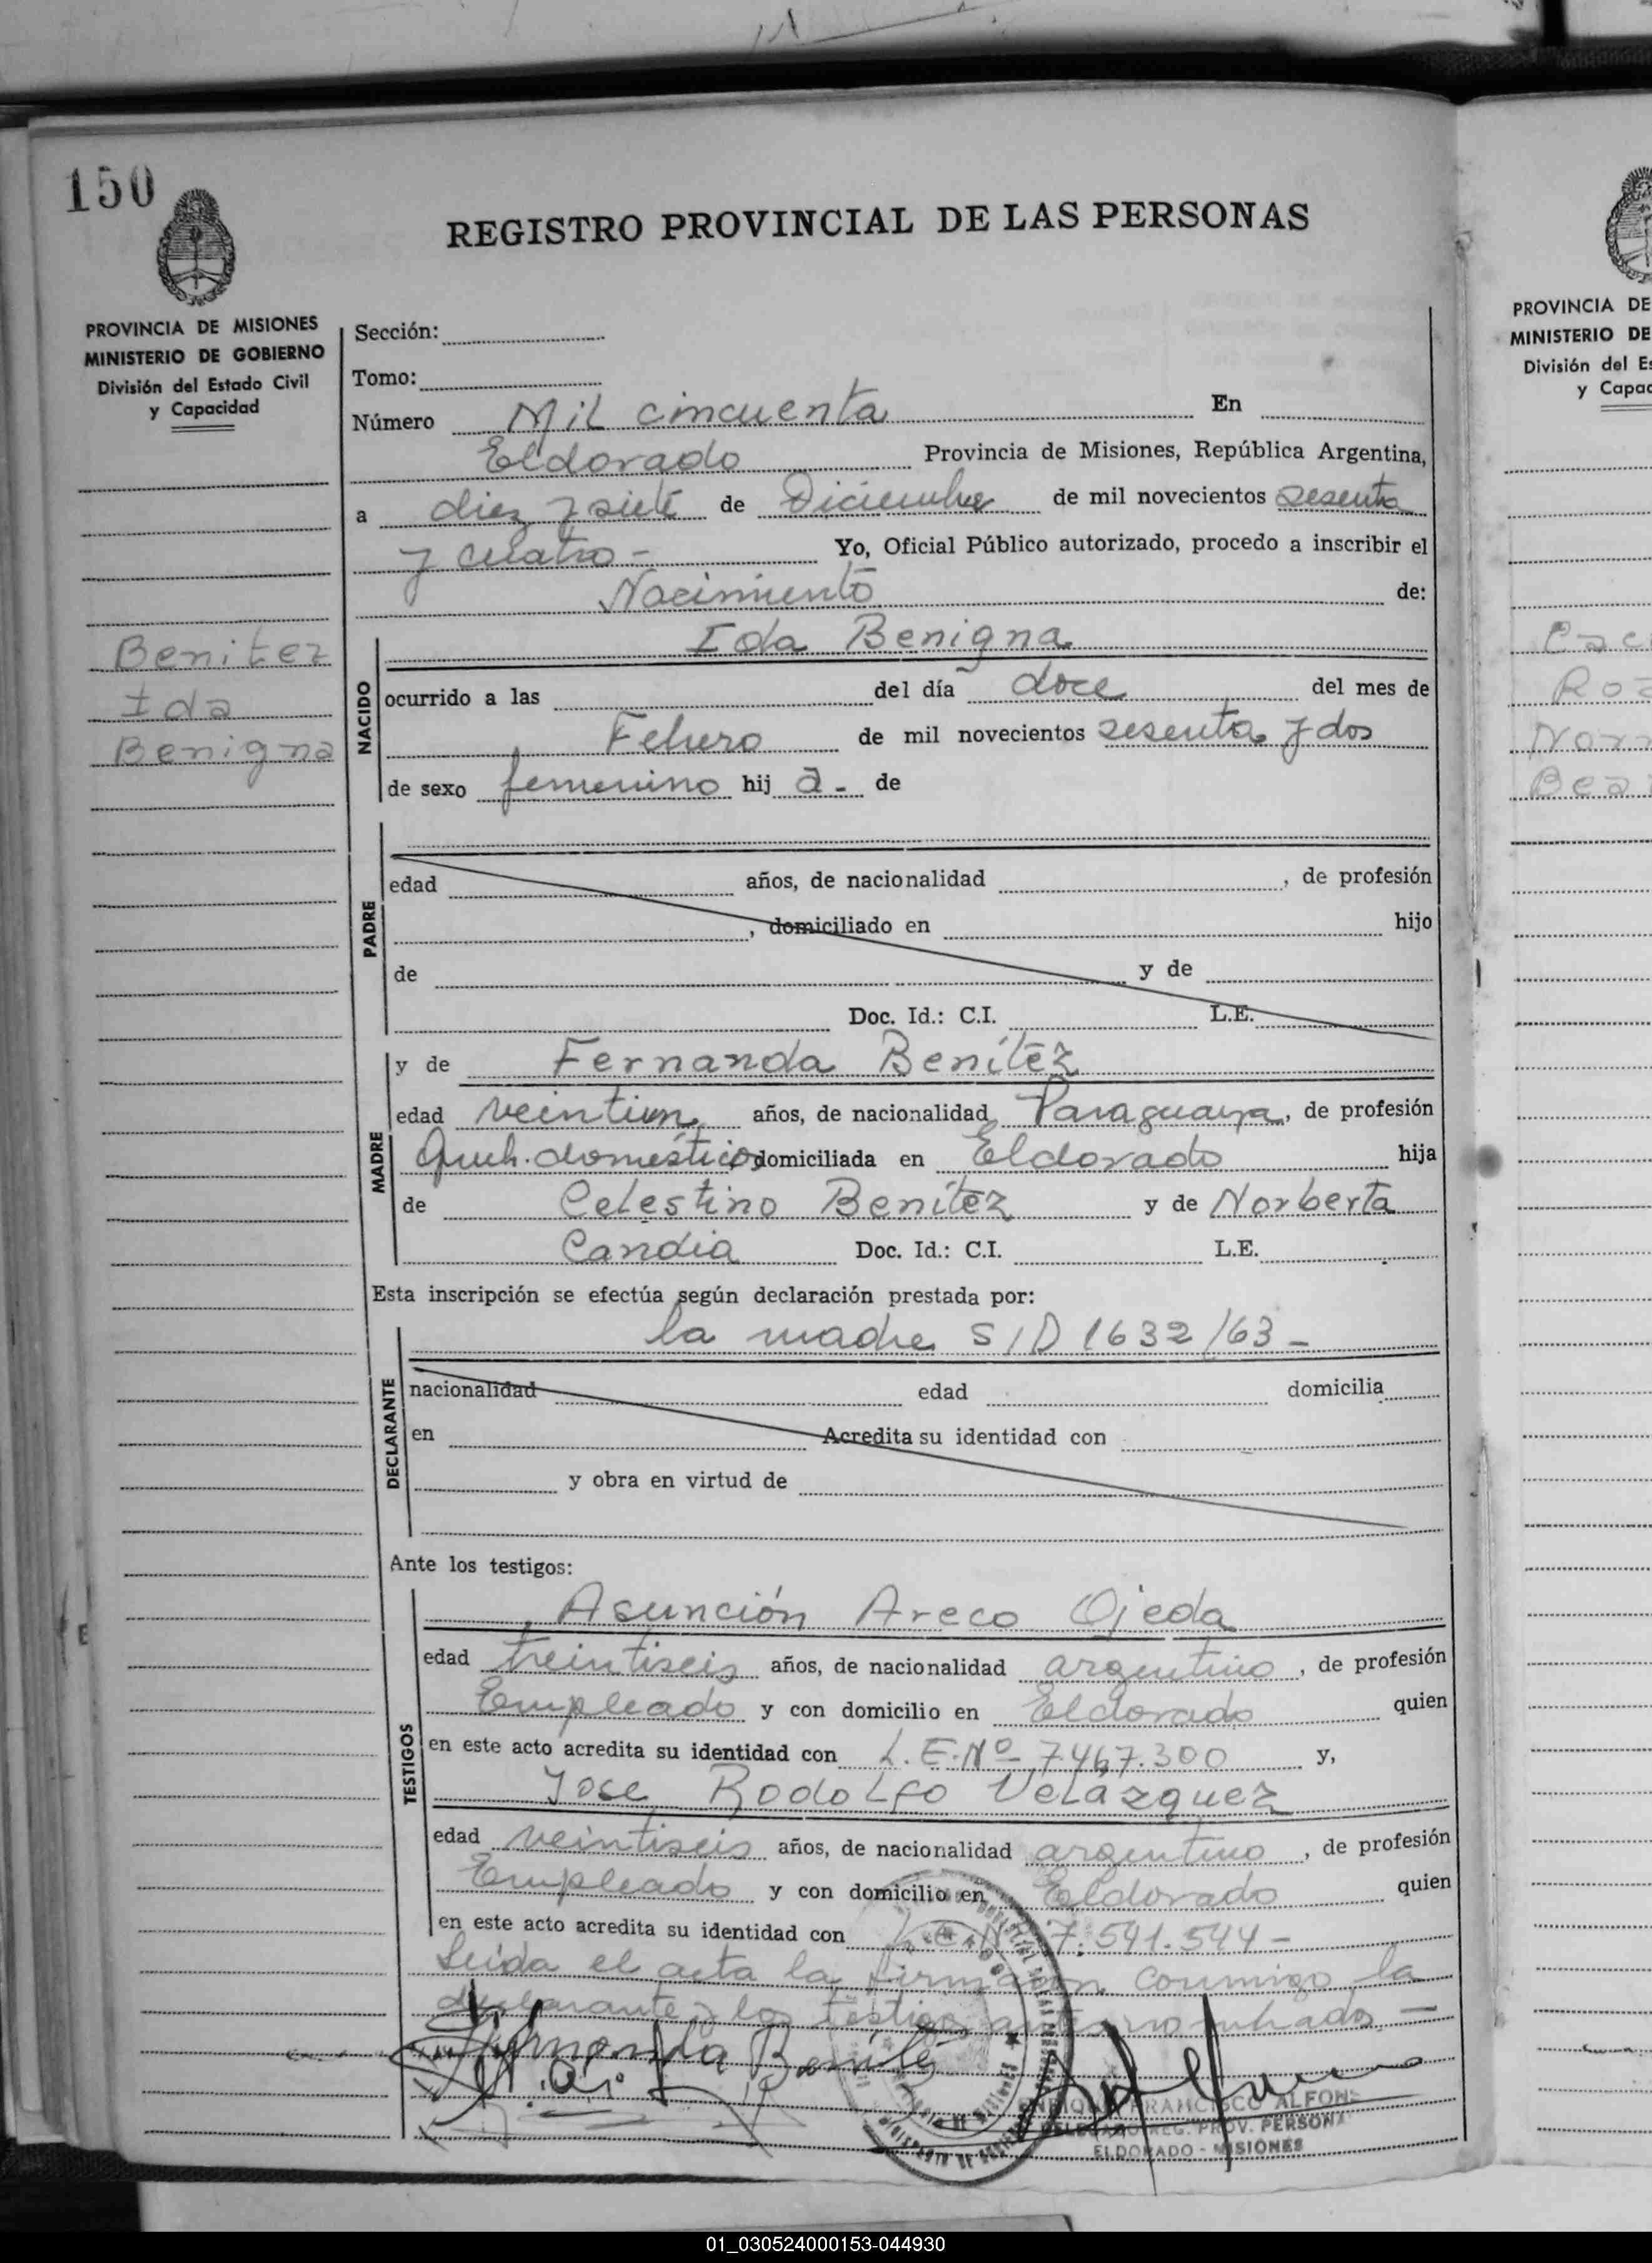 150
REGISTRO PROVINCIAL DE LAS PERSONAS
PROVINCIA DE MISIONES
MINISTERIO DE GOBIERNO
División del Estado Civil
y Capacidad
Benitez
Ida
Benigna
Sección:
Tomo:
Número Mil cincuenta En
Eldorado Provincia de Misiones, República Argentina,
a diez y siete de Diciembre de mil novecientos sesenta
y cuatro - Yo, Oficial Público autorizado, procedo a inscribir el
Nacimiento de:
NACIDO
Ida Benigna
ocurrido a las del día doce del mes de
Febrero de mil novecientos sesenta y dos
de sexo femenino hij a - de
PADRE
edad años, de nacionalidad , de profesión
, domiciliado en hijo
de y de
Doc. Id.: C.I. L.E.
MADRE
y de Fernanda Benítez
edad veintiun años, de nacionalidad Paraguaya, de profesión
Queh. domésticos domiciliada en Eldorado hija
de Celestino Benítez y de Norberta
Candia Doc. Id.: C.I. L.E.
Esta inscripción se efectúa según declaración prestada por:
DECLARANTE
la madre S/D 1632/63 -
nacionalidad edad domicilia
en Acredita su identidad con
y obra en virtud de
Ante los testigos:
TESTIGOS
Asunción Areco Ojeda
edad treintiseis años, de nacionalidad argentino, de profesión
Empleado y con domicilio en Eldorado quien
en este acto acredita su identidad con L.E. Nº 7.467.300 y,
Jose Rodolfo Velázquez
edad veintiseis años, de nacionalidad argentino, de profesión
Empleado y con domicilio en Eldorado quien
en este acto acredita su identidad con L.E. Nº 7.541.544 -
Leida el acta la firman conmigo la
declarante y los testigos antes nombrados -
Fernanda Benítez
FRANCISCO ALFON
DELEGADO REG. PROV. PERSONA
ELDORADO - MISIONES
PROVINCIA DE
MINISTERIO DE
División del Es
y Capac
01_030524000153-044930